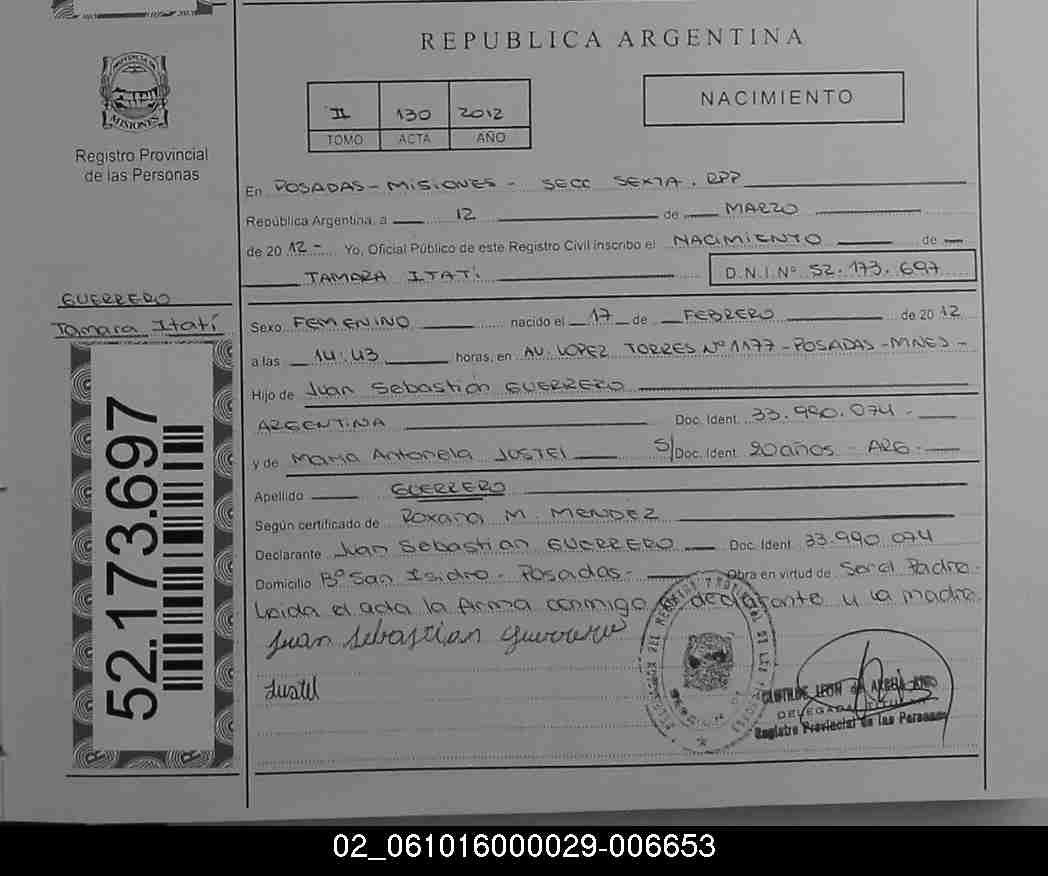 REPUBLICA ARGENTINA
PROVINCIA DE
MISIONES
Registro Provincial
de las Personas
II 130 2012
TOMO ACTA AÑO
NACIMIENTO
En POSADAS - MISIONES - SECC SEXTA. RPP
República Argentina, a 12 de MARZO
de 2012 - Yo, Oficial Público de este Registro Civil inscribo el NACIMIENTO de
TAMARA ITATÍ D.N.I.Nº 52.173.697
GUERRERO
Tamara Itatí
Sexo FEMENINO nacido el 17 de FEBRERO de 2012
a las 14:43 horas, en AV. LOPEZ TORRES Nº 1177 - POSADAS - MNES -
Hijo de Juan Sebastián GUERRERO
ARGENTINA Doc. Ident. 33.990.074 -
y de Maria Antonela JUSTEL S/Doc. Ident. 20 años - ARG -
Apellido GUERRERO
Según certificado de Roxana M. MENDEZ
Declarante Juan Sebastian GUERRERO Doc. Ident. 33.990.074
Domicilio Bº San Isidro - Posadas - Obra en virtud de Ser el Padre.
Leida el acta la firma conmigo declarante y la madre.
Juan Sebastian Guerrero
Justel
52.173.697
CLOTILDE LEON de
DELEGADA TITULAR
Registro Provincial de las Personas
02_061016000029-006653